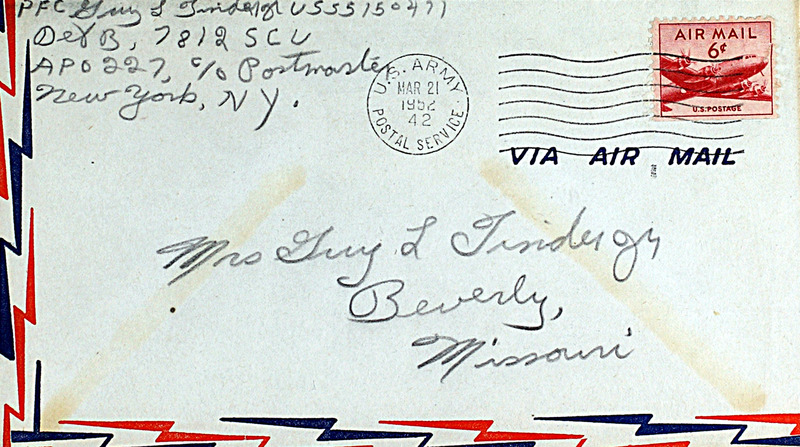 PFC Guy L Tinder Jr US55150471
Det B, 7812 SCU
APO 227, c/o Postmaster
New York, N Y.
U.S. ARMY
MAR 21
1952
42
POSTAL SERVICE
AIR MAIL
6¢
U.S. POSTAGE
VIA AIR MAIL
Mrs Guy L Tinder Jr
Beverly,
Missouri